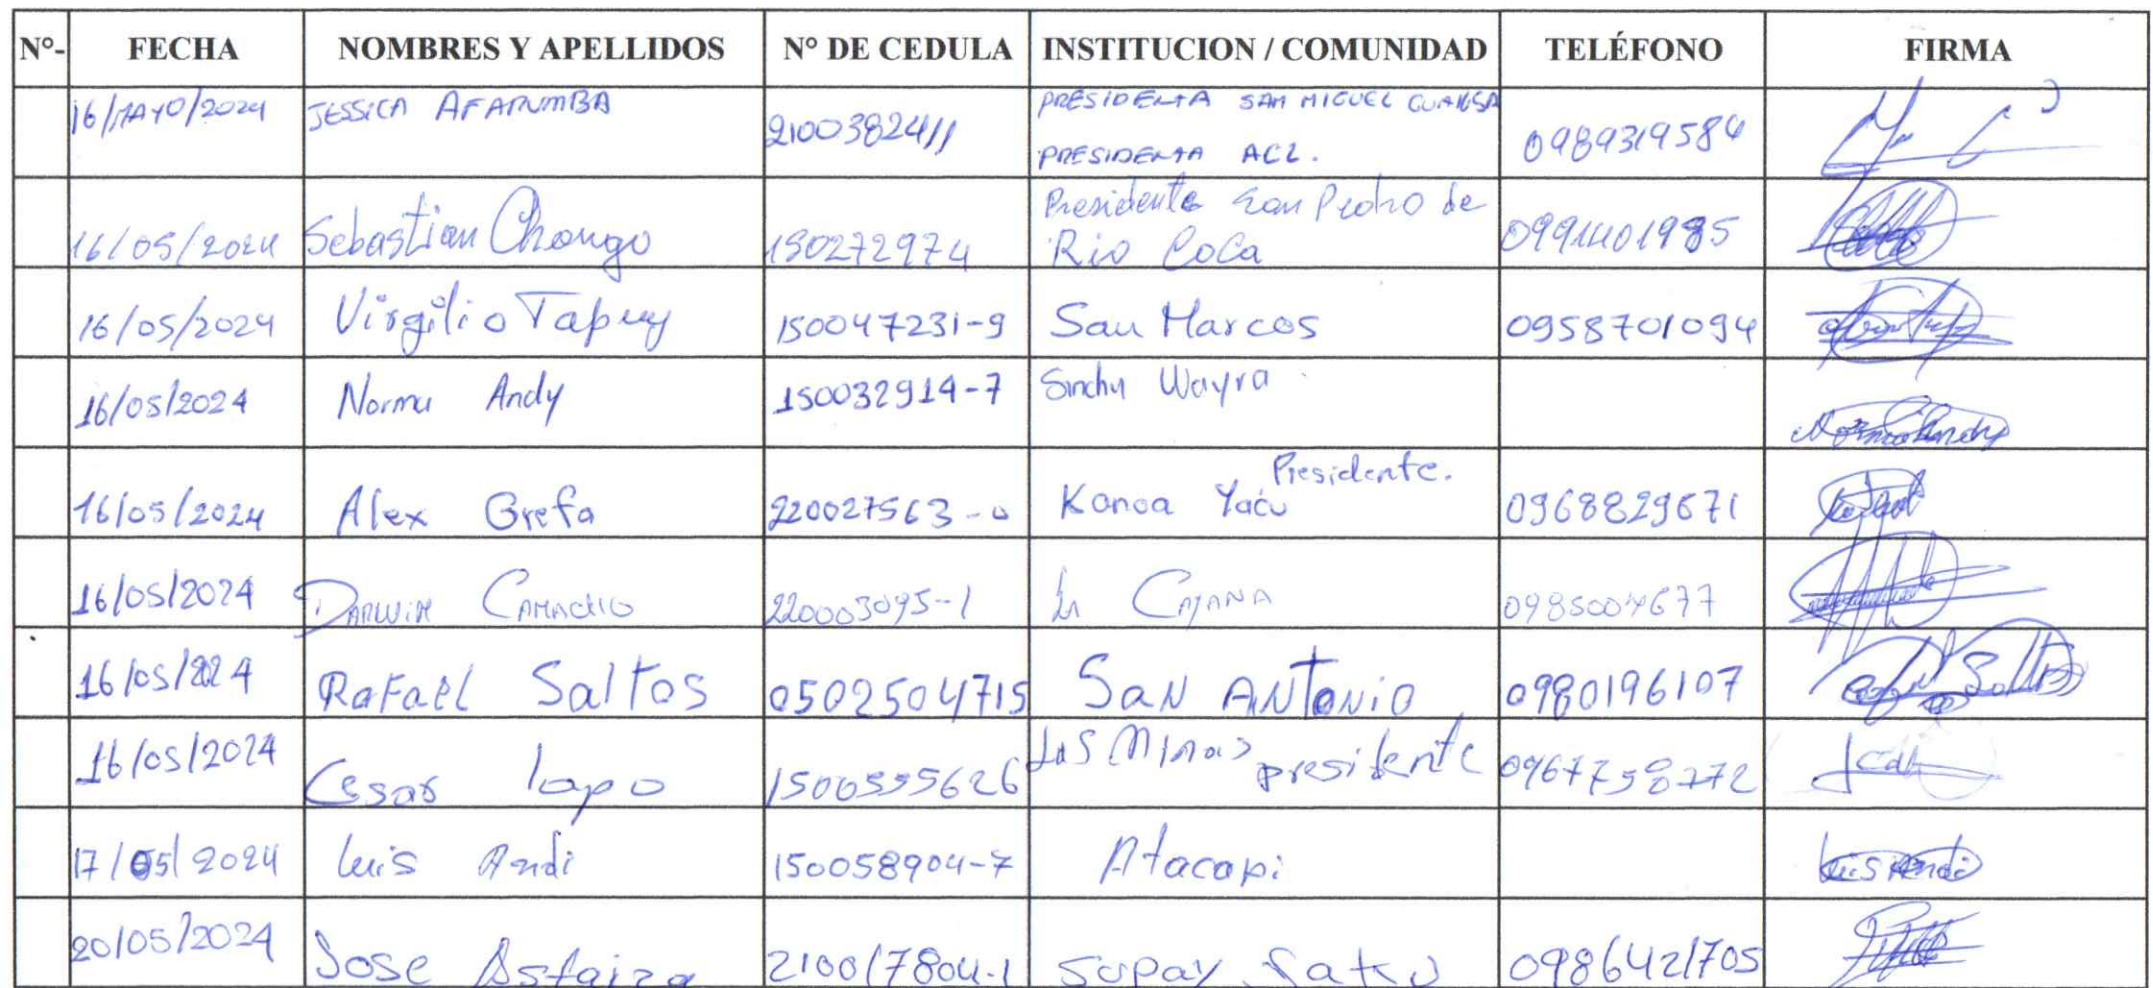 N°- FECHA NOMBRES Y APELLIDOS N° DE CEDULA INSTITUCION / COMUNIDAD TELÉFONO FIRMA
16/MAYO/2024 JESSICA AFARUMBA 2100382411 PRESIDENTA SAN MIGUEL GUANGSA PRESIDENTA ACL. 0989319584
16/05/2024 Sebastian Chongo 150272974 Presidente San Pedro de Rio Coca 0991401985
16/05/2024 Virgilio Tapuy 150047231-9 San Marcos 0958701094
16/05/2024 Norma Andy 150032914-7 Sinchu Wayra
16/05/2024 Alex Grefa 220027563-0 Kanoa Yacu Presidente. 0968829671
16/05/2024 DARWIN CAMACHO 220003095-1 La CAJANA 0985004677
16/05/2024 RaFaEL Saltos 0502504715 SaN ANTONIO 0980196107 Saltos
16/05/2024 Cesar lapo 1500555626 Las Minas presidente 0967758772
17/05/2024 luis Andi 150058904-7 Atacapi luis Andi
20/05/2024 Jose Astaiza 210017804-1 Supay Satku 0986421705